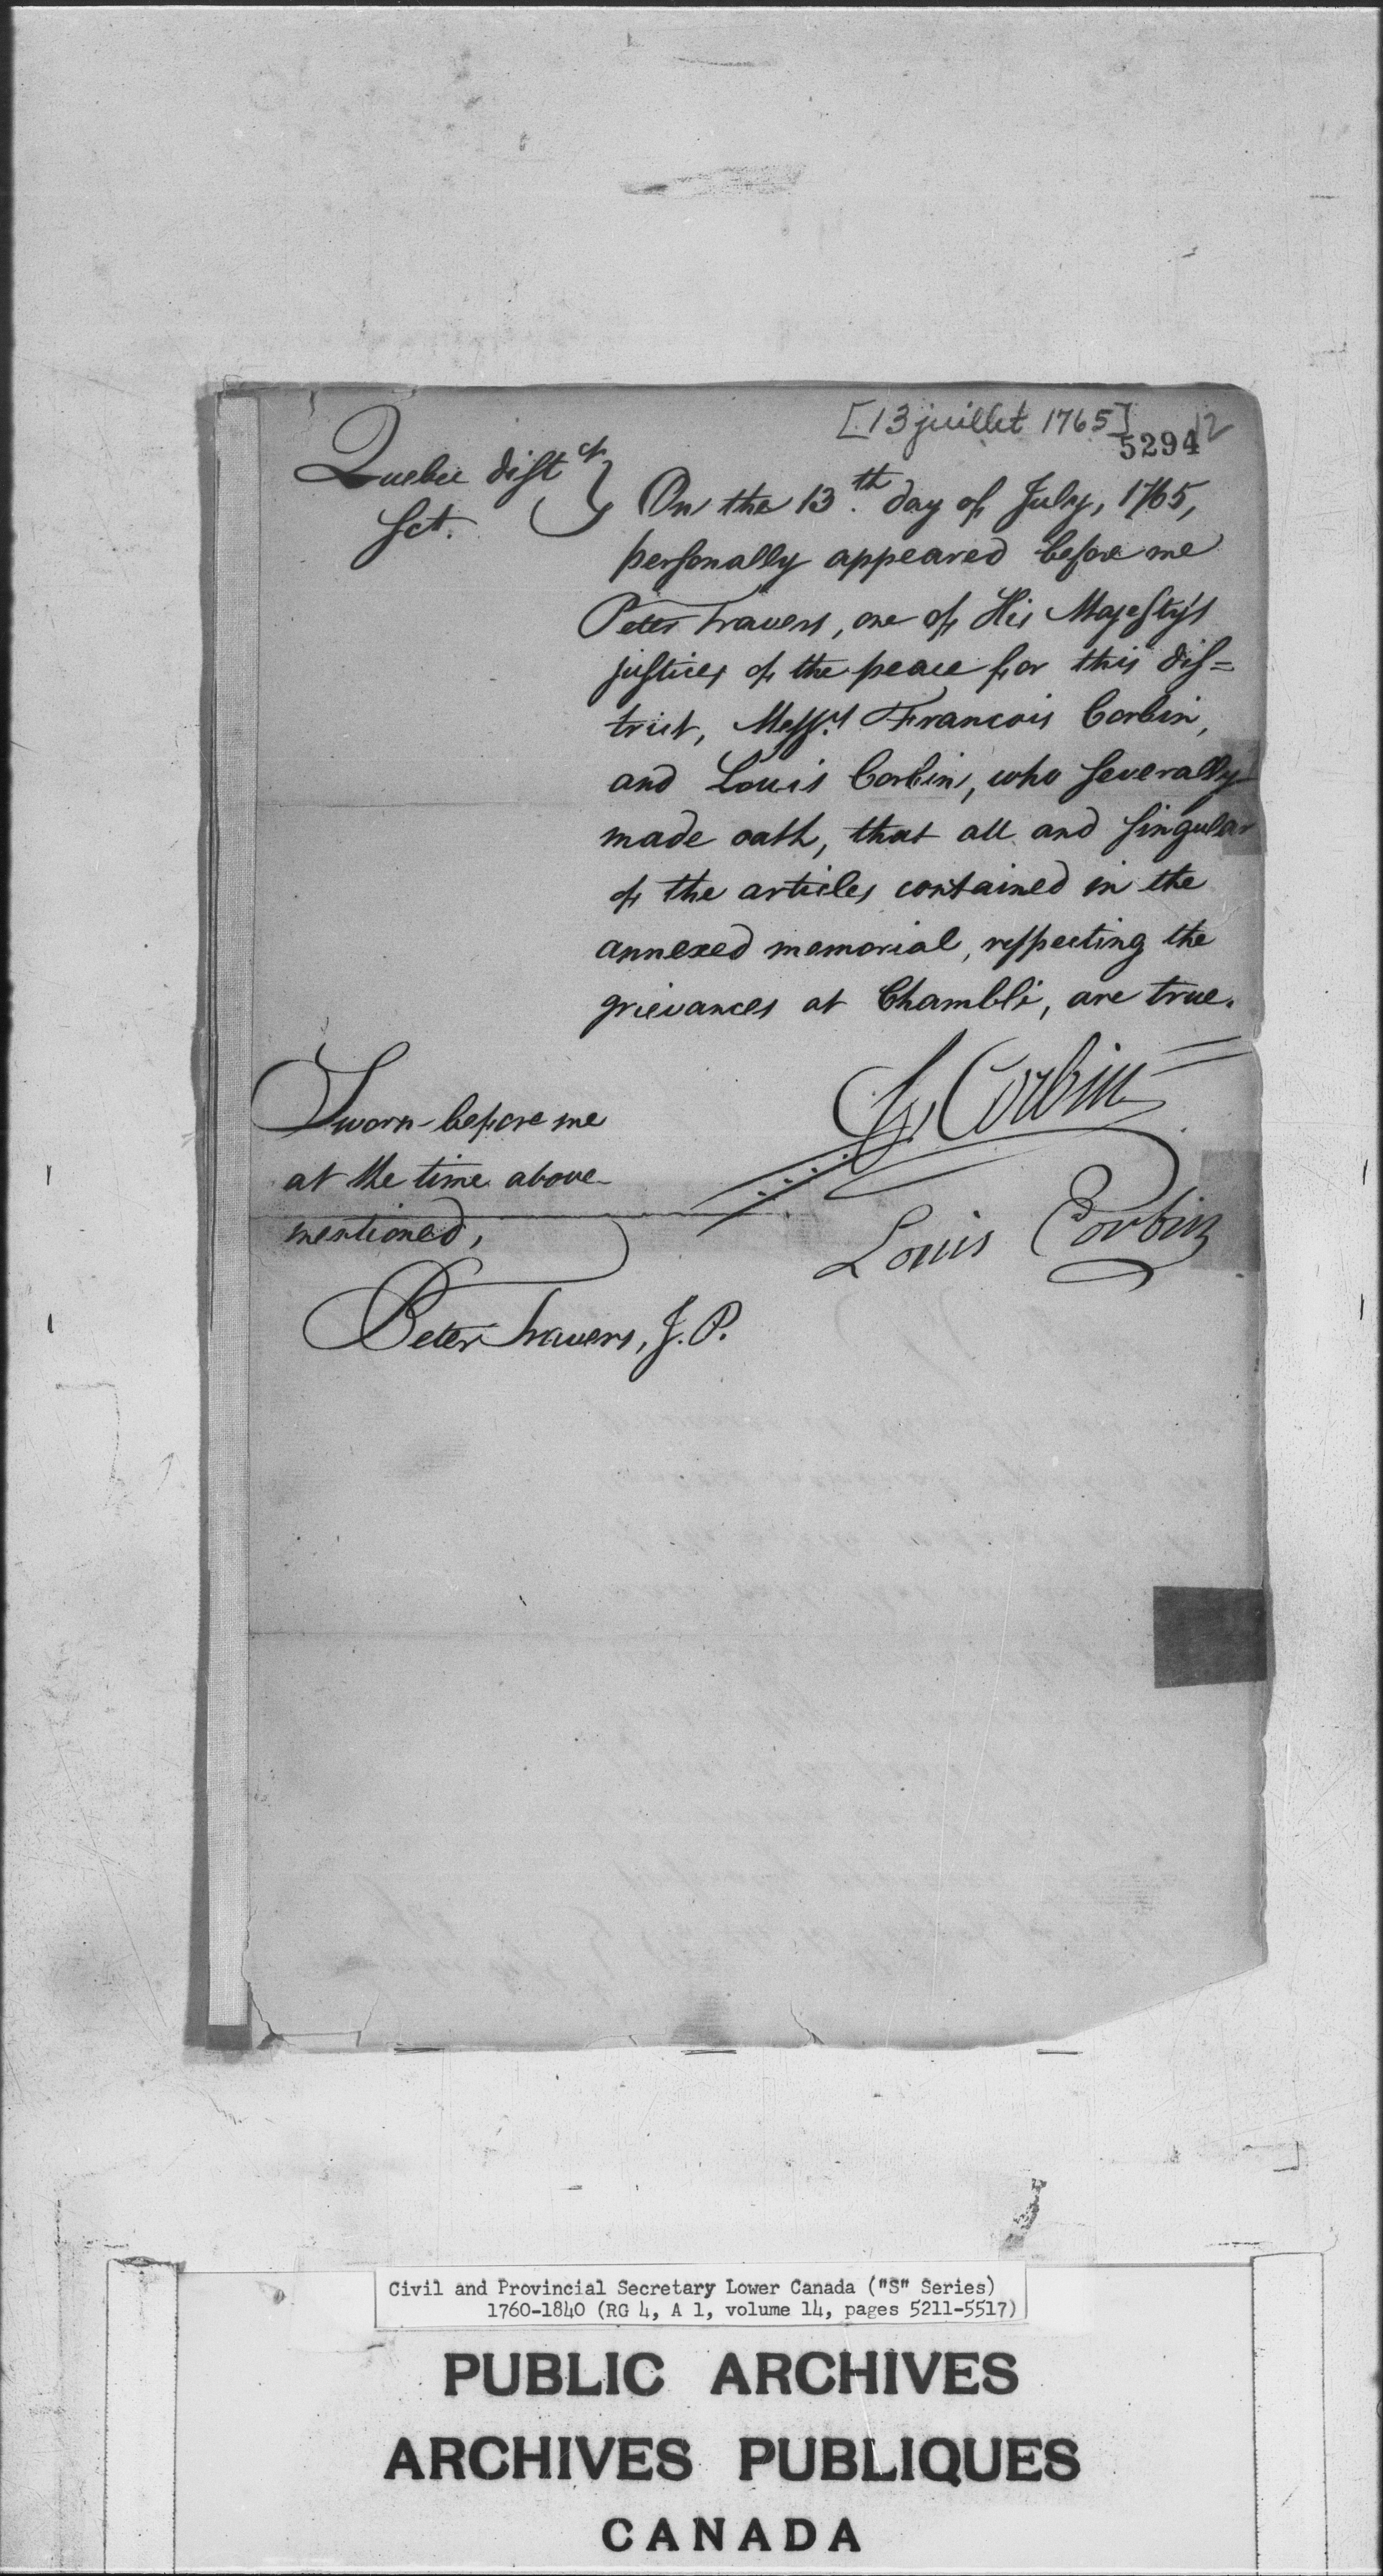 [13 juillet 1765]
5294 12
Quebec dist ct }
sct.
On the 13.th day of July, 1765,
personally appeared before me
Peter Travers, one of His Majesty's
justices of the peace for this dis=
trict, Mess.rs Francois Corbin,
and Louis Corbin, who severally
made oath, that all and singular
of the articles contained in the
annexed memorial, respecting the
grievances at Chambli, are true.
Sworn before me
at the time above-
mentioned,
Peter Travers, J. P.
Corbin
Louis Corbin
Civil and Provincial Secretary Lower Canada ("S" Series)
1760-1840 (RG 4, A 1, volume 14, pages 5211-5517)
PUBLIC ARCHIVES
ARCHIVES PUBLIQUES
CANADA